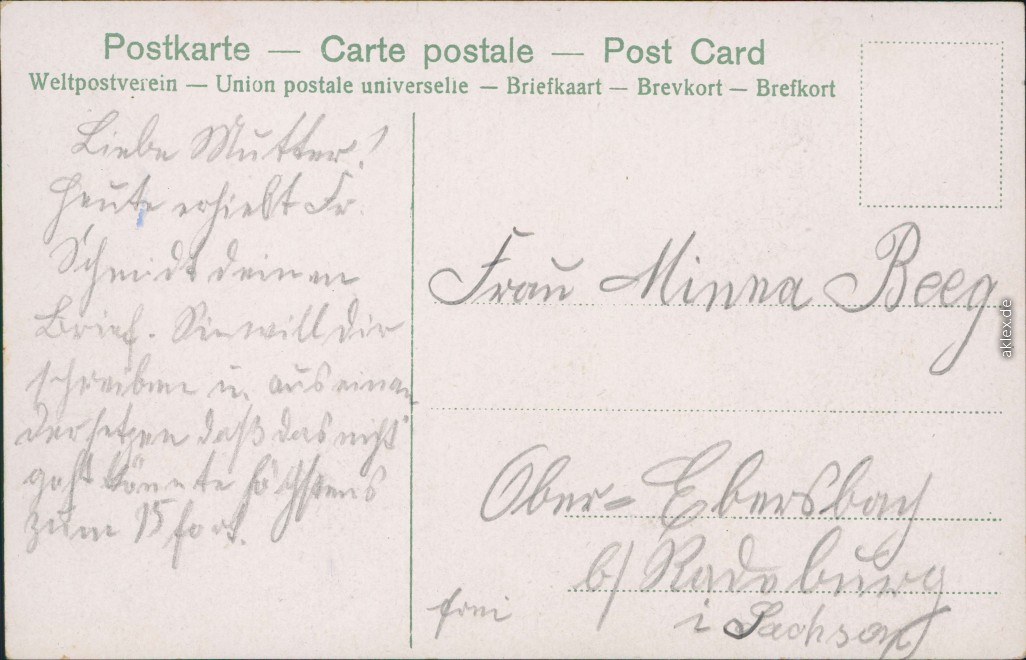 Postkarte — Carte postale — Post Card
Weltpostverein — Union postale universelle — Briefkaart — Brevkort — Brefkort
Liebe Mutter!
Heute erhielt Fr.
Schmidt deinen
Brief. Sie will dir
schreiben u. auseinan
dersetzen daß das nicht
geht könnte höchstens
zum 15 fort.
Frau Minna Beeg
Ober-Ebersbach
b/ Radeburg
i Sachsen
frei
aklex.de